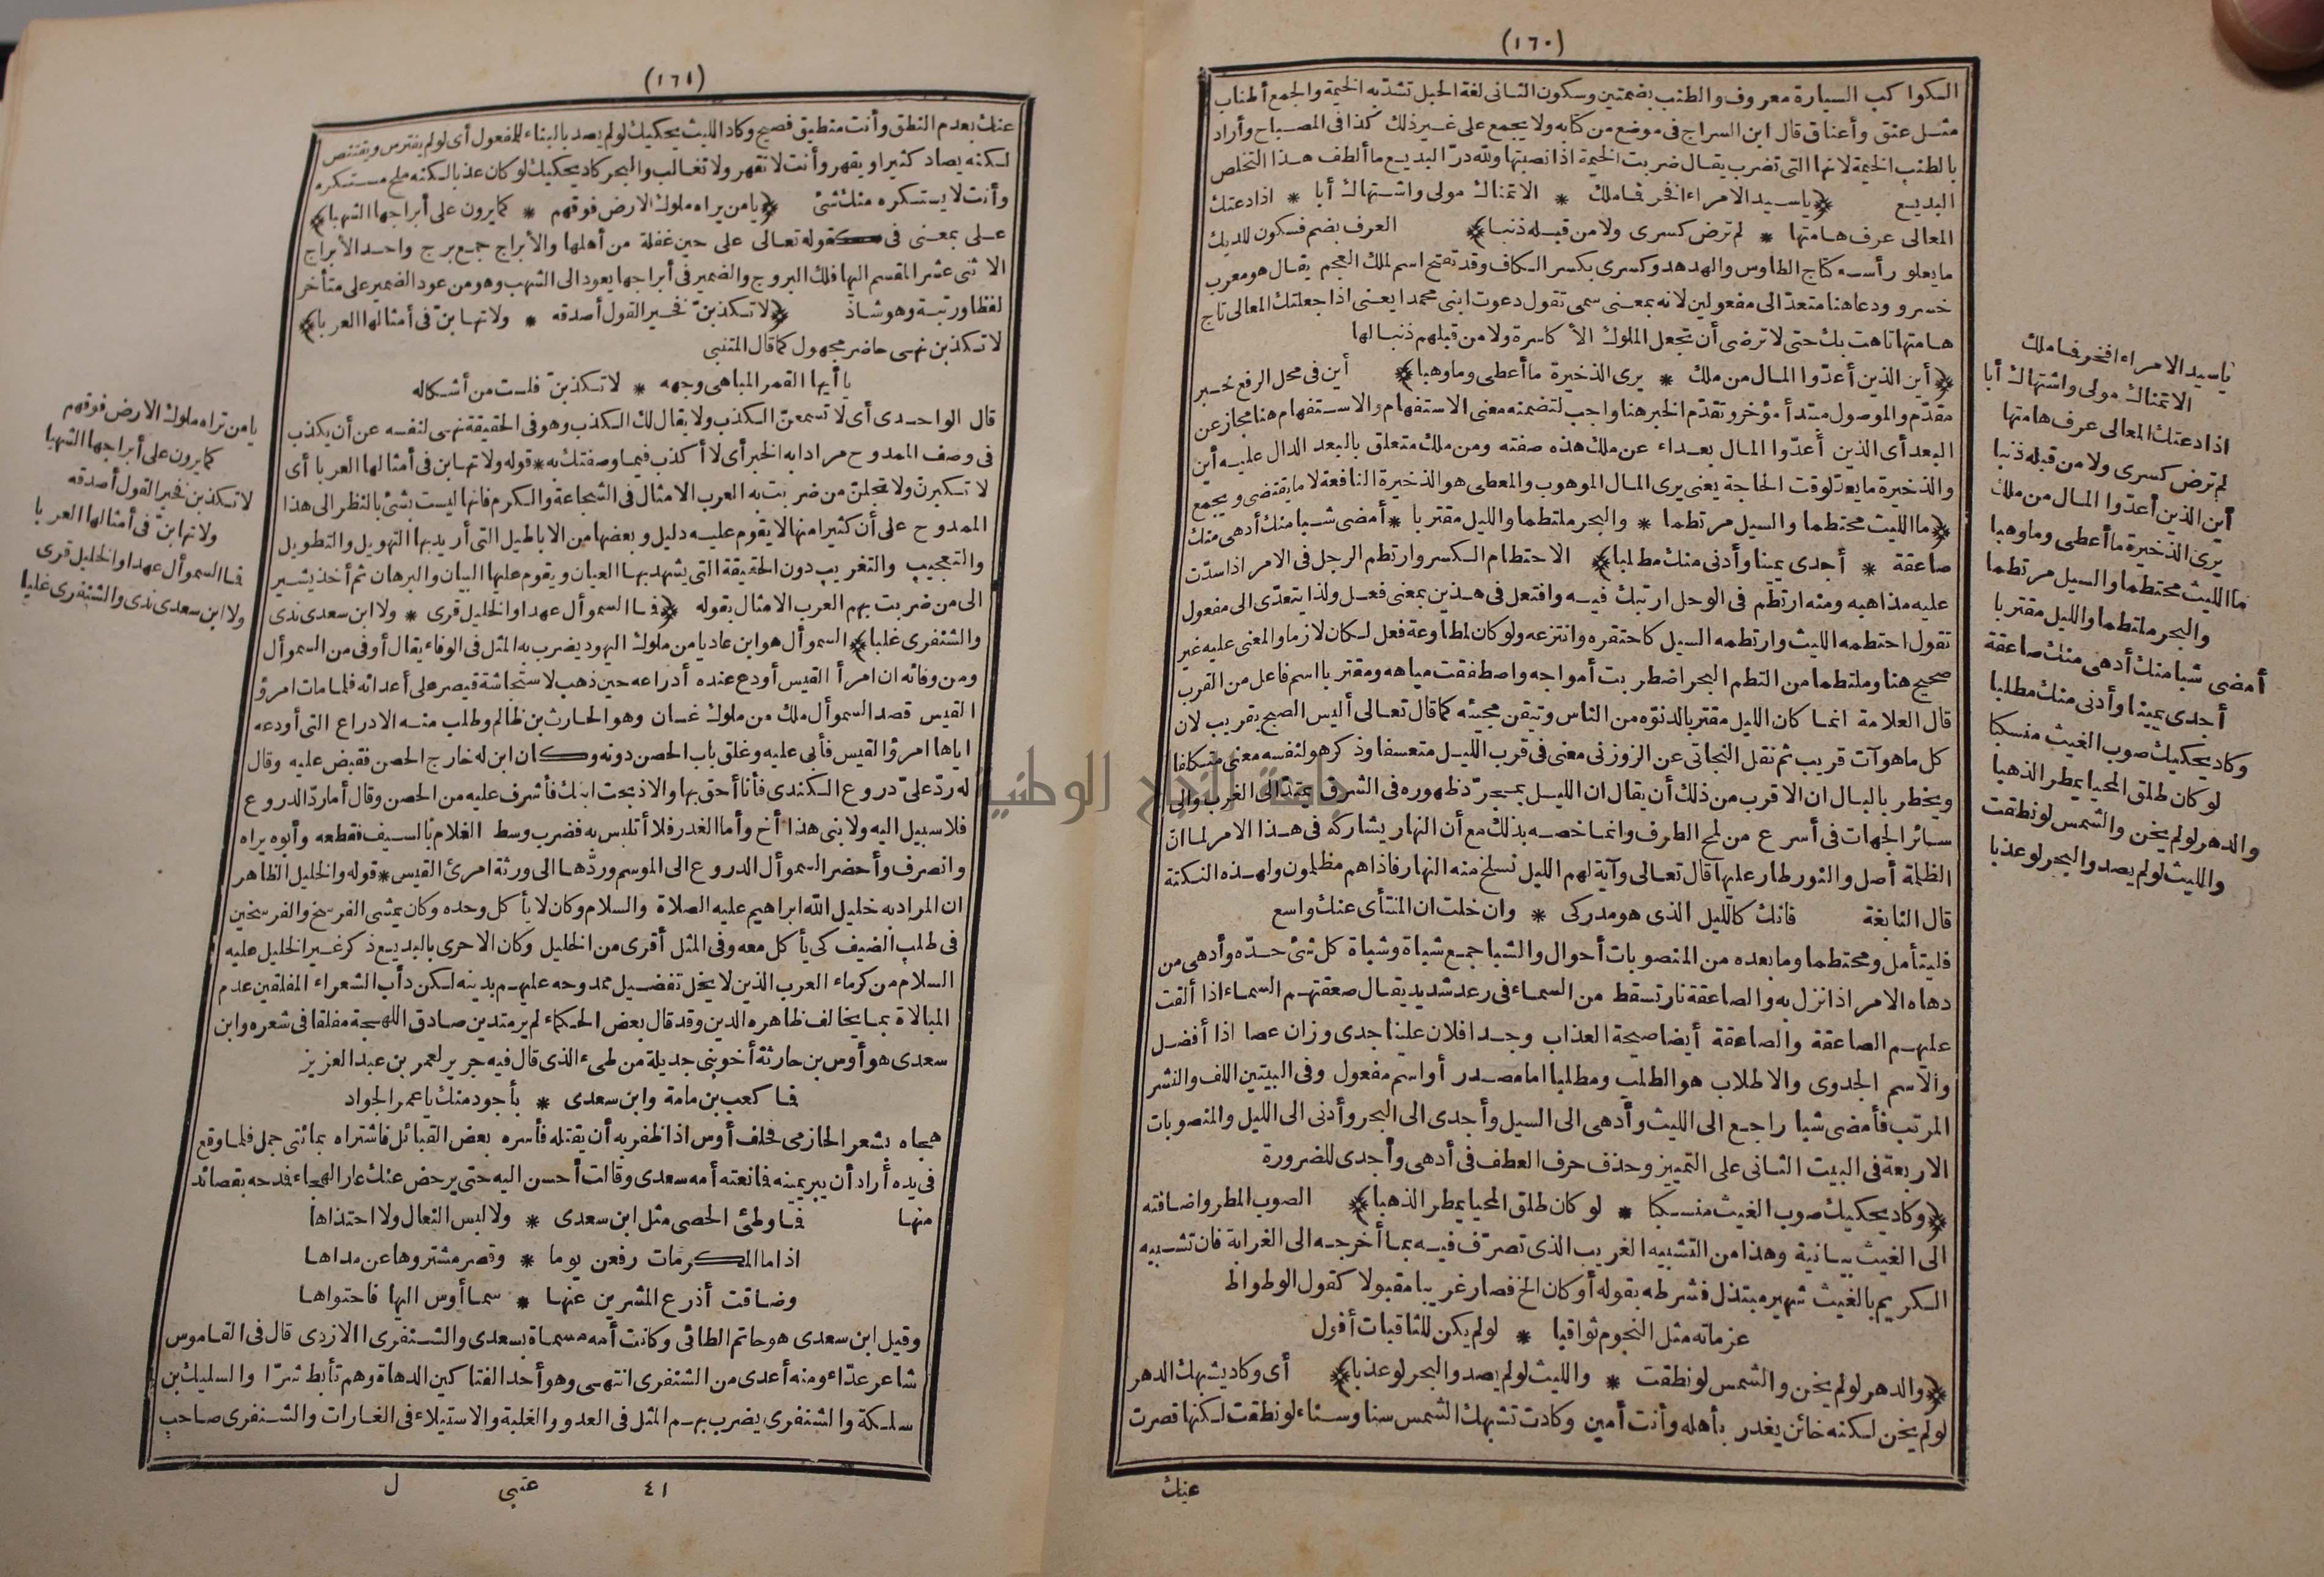 (١٦٠)
الكواكب السيارة معروف والطنب بضمتين وسكون الثانى لغة الحبل تشد به الخيمة والجمع أطناب
مثل عنق وأعناق قال ابن السراج فى موضع من كتابه ولا يجمع على غير ذلك كذا فى المصباح وأراد
بالطنب الخيمة لانها التى تضرب يقال ضربت الخيمة اذا نصبتها ولله در البديع ما ألطف هذا التخلص
البديع ﴿يا سيد الامراء افخر فما ملك * الا تمناك مولى واشتهاك أبا * اذا دعتك
المعالى عرف هامتها * لم ترض كسرى ولا من قبله ذنبا﴾ العرف بضم فسكون للديك
ما يعلو رأسه كتاج الطاوس والهدهد وكسرى بكسر الكاف وقد تفتح اسم لملك العجم يقال هو معرب
خسرو ودعا هنا متعد الى مفعولين لانه بمعنى سمى تقول دعوت ابنى محمدا يعنى اذا جعلتك المعالى تاج
هامتها تاهت بك حتى لا ترضى أن تجعل الملوك الأكاسرة ولا من قبلهم ذنبا لها
﴿أين الذين أعدّوا المال من ملك * يرى الذخيرة ما أعطى وما وهبا﴾ أين فى محل الرفع خبر
مقدّم والموصول مبتدأ مؤخر وتقدّم الخبر هنا واجب لتضمنه معنى الاستفهام والاستفهام هنا مجاز عن
البعد أى الذين أعدّوا المال بعداء عن ملك هذه صفته ومن ملك متعلق بالبعد الدال عليه أين
والذخيرة ما يعد لوقت الحاجة يعنى يرى المال الموهوب والمعطى هو الذخيرة النافعة لا ما يقتنى ويجمع
﴿ما الليث محتطما والسيل مرتطما * والبحر ملتطما والليل مقتربا * أمضى شبا منك أدهى منك
صاعقة * أجدى يمينا وأدنى منك مطلبا﴾ الاحتطام الكسر وارتطم الرجل فى الامر اذا سدّت
عليه مذاهبه ومنه ارتطم فى الوحل ارتبك فيه وافتعل فى هذين بمعنى فعل ولذا يتعدّى الى مفعول
تقول احتطمه الليث وارتطمه السيل كاحتقره وانتزعه ولو كان لمطاوعة فعل لكان لازما والمعنى عليه غير
صحيح هنا وملتطما من التطم البحر اضطربت أمواجه واصطفقت مياهه ومقتربا اسم فاعل من القرب
قال العلامة انما كان الليل مقتربا لدنوّه من الناس وتيقن مجيئه كما قال تعالى أليس الصبح بقريب لان
كل ما هو آت قريب ثم نقل النجاتى عن الزوزنى معنى فى قرب الليل متعسفا وذكر هو لنفسه معنى متكلفا
ويخطر بالبال ان الاقرب من ذلك أن يقال ان الليل بمجرّد ظهوره فى الشرق يمتد الى الغرب والى
سائر الجهات فى أسرع من لمح الطرف وانما خصه بذلك مع أن النهار يشاركه فى هذا الامر لما انّ
الظلمة أصل والنور طار عليها قال تعالى وآية لهم الليل نسلخ منه النهار فاذا هم مظلمون ولهذه النكتة
قال النابغة فانك كالليل الذى هو مدركى * وان خلت ان المنتأى عنك واسع
فليتأمل ومحتطما وما بعده من المنصوبات أحوال والشبا جمع شباة وشباة كل شئ حدّه وأدهى من
دهاه الامر اذا نزل به والصاعقة نار تسقط من السماء فى رعد شديد يقال صعقتهم السماء اذا ألقت
عليهم الصاعقة والصاعقة أيضا صيحة العذاب وجدا فلان علينا جدى وزان عصا اذا أفضل
والاسم الجدوى والاطلاب هو الطلب ومطلبا اما مصدر أو اسم مفعول وفى البيتين اللف والنشر
المرتب فأمضى شبا راجع الى الليث وأدهى الى السيل وأجدى الى البحر وأدنى الى الليل والمنصوبات
الاربعة فى البيت الثانى على التمييز وحذف حرف العطف فى أدهى وأجدى للضرورة
﴿وكاد يحكيك صوب الغيث منسكبا * لو كان طلق المحيا يمطر الذهبا﴾ الصوب المطر واضافته
الى الغيث بيانية وهذا من التشبيه الغريب الذى تصرّف فيه بما أخرجه الى الغرابة فان تشبيه
الكريم بالغيث شهير مبتذل فشرطه بقوله أو كان الخ فصار غريبا مقبولا كقول الوطواط
عزماته مثل النجوم ثواقبا * لو لم يكن للثاقبات أفول
﴿والدهر لو لم يخن والشمس لو نطقت * والليث لو لم يصد والبحر لو عذبا﴾ أى وكاد يشبهك الدهر
لو لم يخن لكنه خائن يغدر بأهله وأنت أمين وكادت تشبهك الشمس سنا وسناء لو نطقت لكنها قصرت
عنك
يا سيد الامراء افخر فما ملك
الا تمناك مولى واشتهاك أبا
اذا دعتك المعالى عرف هامتها
لم ترض كسرى ولا من قبله ذنبا
أين الذين أعدّوا المال من ملك
يرى الذخيرة ما أعطى وما وهبا
ما الليث محتطما والسيل مرتطما
والبحر ملتطما والليل مقتربا
أمضى شبا منك أدهى منك صاعقة
أجدى يمينا وأدنى منك مطلبا
وكاد يحكيك صوب الغيث منسكبا
لو كان طلق المحيا يمطر الذهبا
والدهر لو لم يخن والشمس لو نطقت
والليث لو لم يصد والبحر لو عذبا
(١٦١)
عنك بعدم النطق وأنت منطيق فصيح وكاد الليث يحكيك لو لم يصد بالبناء للمفعول أى لو لم يفترس ويقتنص
لكنه يصاد كثيرا ويقهر وأنت لا تقهر ولا تغالب والبحر كاد يحكيك لو كان عذبا لكنه ملح مستكره
وأنت لا يستكره منك شئ ﴿يا من يراه ملوك الارض فوقهم * كما يرون على أبراجها الشهبا﴾
على بمعنى فى كقوله تعالى على حين غفلة من أهلها والأبراج جمع برج واحد الأبراج
الاثنى عشر المقسم اليها فلك البروج والضمير فى أبراجها يعود الى الشهب وهو من عود الضمير على متأخر
لفظا ورتبة وهو شاذ ﴿لا تكذبنّ فخير القول أصدقه * ولا تهابنّ فى أمثالها العربا﴾
لا تكذبن نهى حاضر مجهول كما قال المتنبى
يا أيها القمر المباهى وجهه * لا تكذبنّ فلست من أشكاله
قال الواحدى أى لا تسمعنّ الكذب ولا يقال لك الكذب وهو فى الحقيقة نهى لنفسه عن أن يكذب
فى وصف الممدوح مرادا به الخبر أى لا أكذب فيما وصفتك به * قوله ولا تهابن فى أمثالها العربا أى
لا تكبرنّ ولا تجلنّ من ضربت به العرب الامثال فى الشجاعة والكرم فانها ليست بشئ بالنظر الى هذا
الممدوح على أن كثيرا منها لا يقوم عليه دليل وبعضها من الاباطيل التى أريد بها التهويل والتطويل
والتعجيب والتغريب دون الحقيقة التى يشهد بها العيان ويقوم عليها البيان والبرهان ثم أخذ يشير
الى من ضربت بهم العرب الامثال بقوله ﴿فما السموأل عهدا والخليل قرى * ولا ابن سعدى ندى
والشنفرى غلبا﴾ السموأل هو ابن عاديا من ملوك اليهود يضرب به المثل فى الوفاء يقال أوفى من السموأل
ومن وفائه ان امرأ القيس أودع عنده أدراعه حين ذهب لاستجاشة قيصر على أعدائه فلما مات امرؤ
القيس قصد السموأل ملك من ملوك غسان وهو الحارث بن ظالم وطلب منه الادراع التى أودعه
اياها امرؤ القيس فأبى عليه وغلق باب الحصن دونه وكان ابن له خارج الحصن فقبض عليه وقال
له ردّ علىّ دروع الكندى فأنا أحق بها والا ذبحت ابنك فأشرف عليه من الحصن وقال أما ردّ الدروع
فلا سبيل اليه ولا بنى هذا أخ وأما الغدر فلا أتلبس به فضرب وسط الغلام بالسيف فقطعه وأبوه يراه
وانصرف وأحضر السموأل الدروع الى الموسم وردّها الى ورثة امرئ القيس * قوله والخليل الظاهر
ان المراد به خليل الله ابراهيم عليه الصلاة والسلام وكان لا يأكل وحده وكان يمشى الفرسخ والفرسخين
فى طلب الضيف كى يأكل معه وفى المثل أقرى من الخليل وكان الاحرى بالبديع ذكر غير الخليل عليه
السلام من كرماء العرب الذين لا يخل تفضيل ممدوحه عليهم بدينه لكن دأب الشعراء المفلقين عدم
المبالاة بما يخالف ظاهره الدين وقد قال بعض الحكماء لم ير متدين صادق اللهجة مفلقا فى شعره وابن
سعدى هو أوس بن حارثة أخو بنى جديلة من طىء الذى قال فيه جرير لعمر بن عبد العزيز
فما كعب بن مامة وابن سعدى * بأجود منك يا عمر الجواد
هجاه بشعر الحازمى فحلف أوس اذا ظفر به أن يقتله فأسره بعض القبائل فاشتراه بمائتى جمل فلما وقع
فى يده أراد أن يبر يمينه فمانعته أمه سعدى وقالت أحسن اليه حتى يرحض عنك عار الهجاء فمدحه بقصائد
منها فما وطئ الحصى مثل ابن سعدى * ولا لبس النعال ولا احتذاها
اذا ما المكرمات رفعن يوما * وقصر مشتروها عن مداها
وضاقت أذرع المثرين عنها * سما أوس اليها فاحتواها
وقيل ابن سعدى هو حاتم الطائى وكانت أمه مسماة بسعدى والشنفرى الازدى قال فى القاموس
شاعر عدّاء ومنه أعدى من الشنفرى انتهى وهو أحد الفتاكين الدهاة وهم تأبط شرّا والسليك بن
سلكة والشنفرى يضرب بهم المثل فى العدو والغلبة والاستيلاء فى الغارات والشنفرى صاحب
٤١ عتبى ل
يا من تراه ملوك الارض فوقهم
كما يرون على أبراجها الشهبا
لا تكذبن فخير القول أصدقه
ولا تهابنّ فى أمثالها العربا
فما السموأل عهدا والخليل قرى
ولا ابن سعدى ندى والشنفرى غلبا
جامعة النجاح الوطنية